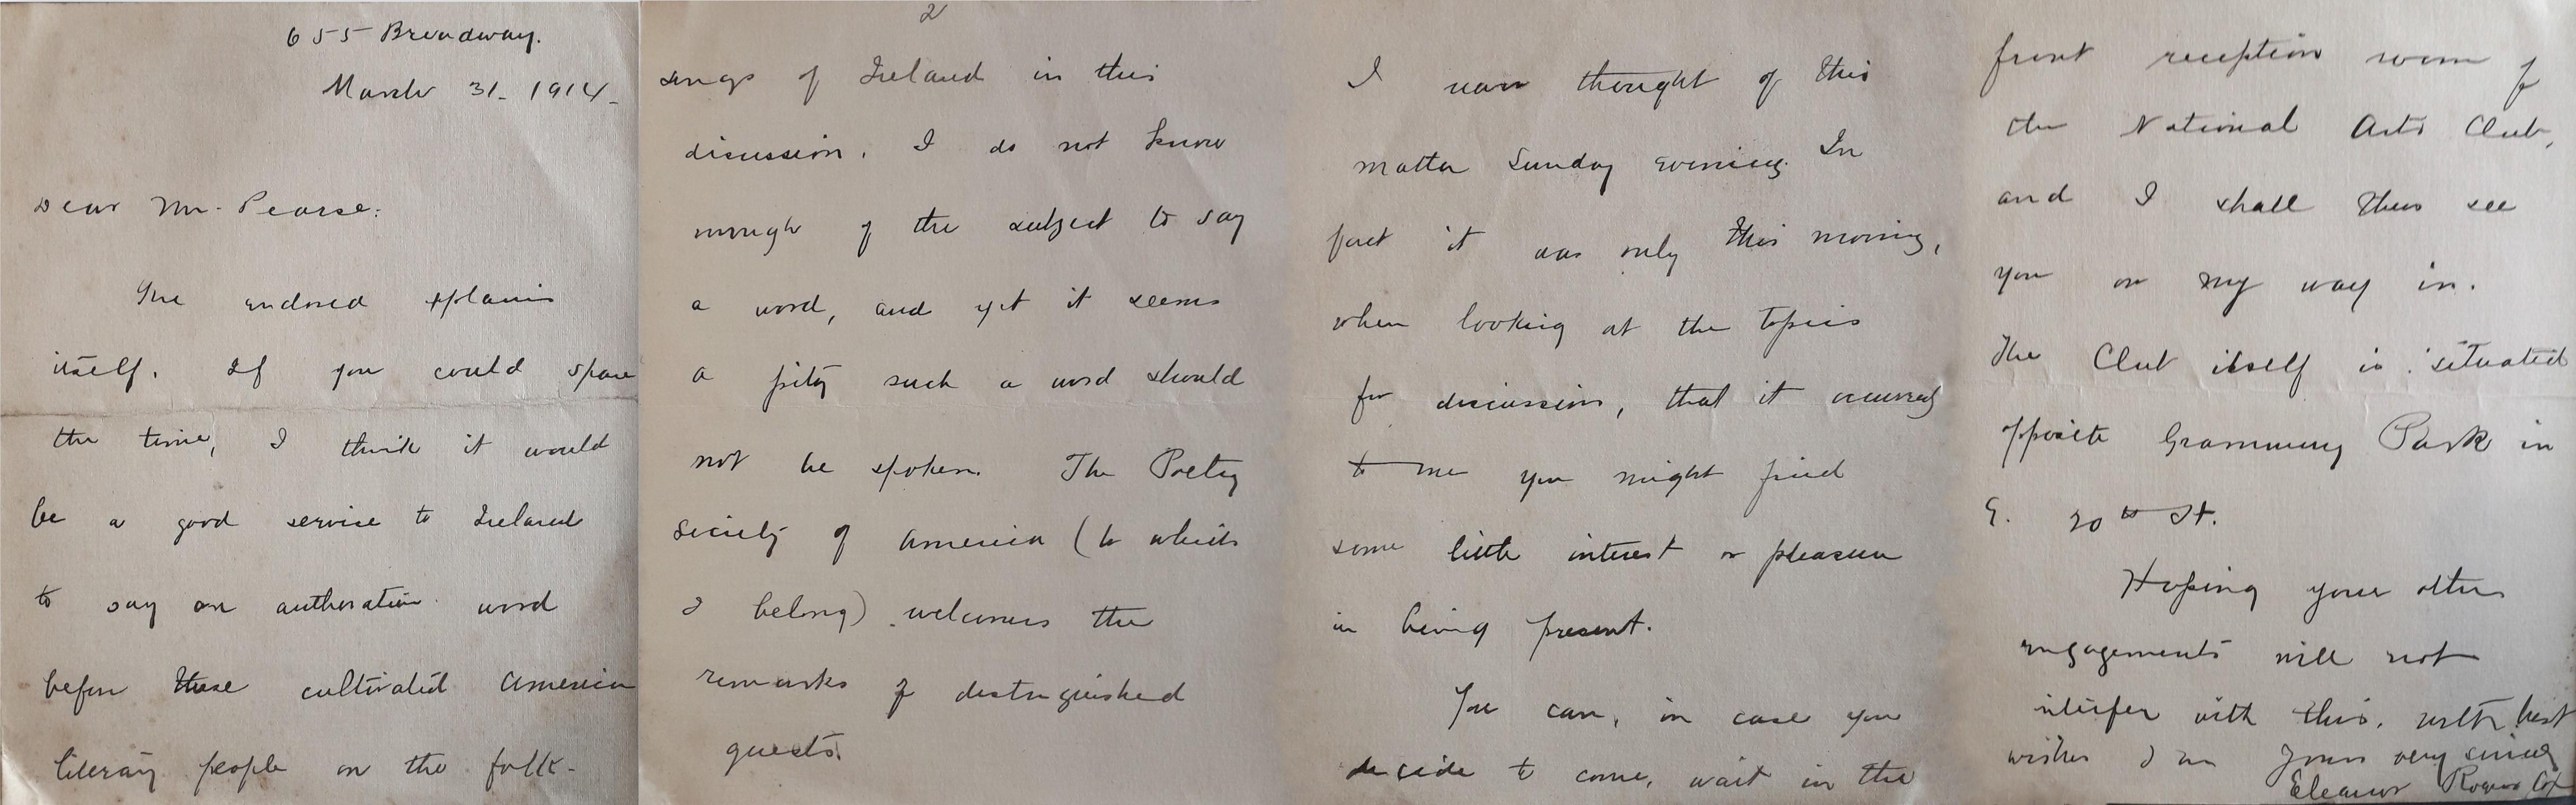 655 Broadway.
March 31- 1914-
Dear Mr- Pearse:
The enclosed explains
itself. If you could spare
the time, I think it would
be a good service to Ireland
to say an authorative word
before these cultivated American
literary people on the folk-
2
songs of Ireland in this
discussion. I do not know
enough of the subject to say
a word, and yet it seems
a pity such a word should
not be spoken. The Poetry
Society of America (to which
I belong) welcomes the
remarks of distinguished
guests.
I never thought of this
matter Sunday evening. In
fact it was only this morning,
when looking at the topics
for discussion, that it occurred
to me you might find
some little interest or pleasure
in being present.
You can, in case you
decide to come, wait in the
front reception room of
the National Arts Club,
and I shall then see
you on my way in.
The Club itself is situated
opposite Grammercy Park in
E. 20th St.
Hoping your other
engagements will not
interfer with this. With best
wishes I am Yours very sincerely
Eleanor Rogers Cox